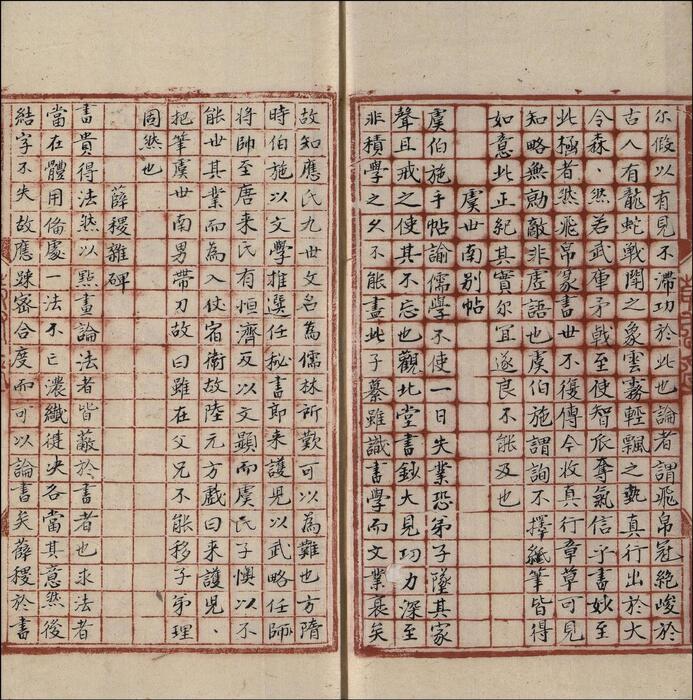 尓假以有見不滯功於此也論者謂飛帛冠絶峻於
古人有龍蛇戰鬪之象雲霧輕飄之勢真行出於大
令森、然若武庫矛戟至使智𠂢奪氣信乎書妙至
此極者然飛帛篆書世不復傳今收真行章草可見
知略無勍敵非虛語也虞伯施謂詢不擇紙筆皆得
如意此正紀其實尓冝遂良不能及也
虞世南别帖
虞伯施手帖論儒學不使一日失業恐弟子墜其家
聲且戒之使其不忘也觀北堂書鈔大見功力深至
非積學之久不能盡此子纂雖識書學而文業衰矣
故知應氏九世文名為儒林所歎可以為難也方隋
時伯施以文學推選任秘書郎来護児以武略任師
將帥至唐来氏有恒濟反以文顯而虞氏子懊以不
能世其業而為入仗宿衛故陸元方戲曰来護児、
把筆虞世南男帶刀故曰雖在父兄不能移子弟理
固然也
薛稷雜碑
書貴得法然以點畫論法者皆蔽於書者也求法者
當在體用備處一法不亡濃纖健决各當其意然後
結字不失故應踈密合度而可以論書矣薛稷於書